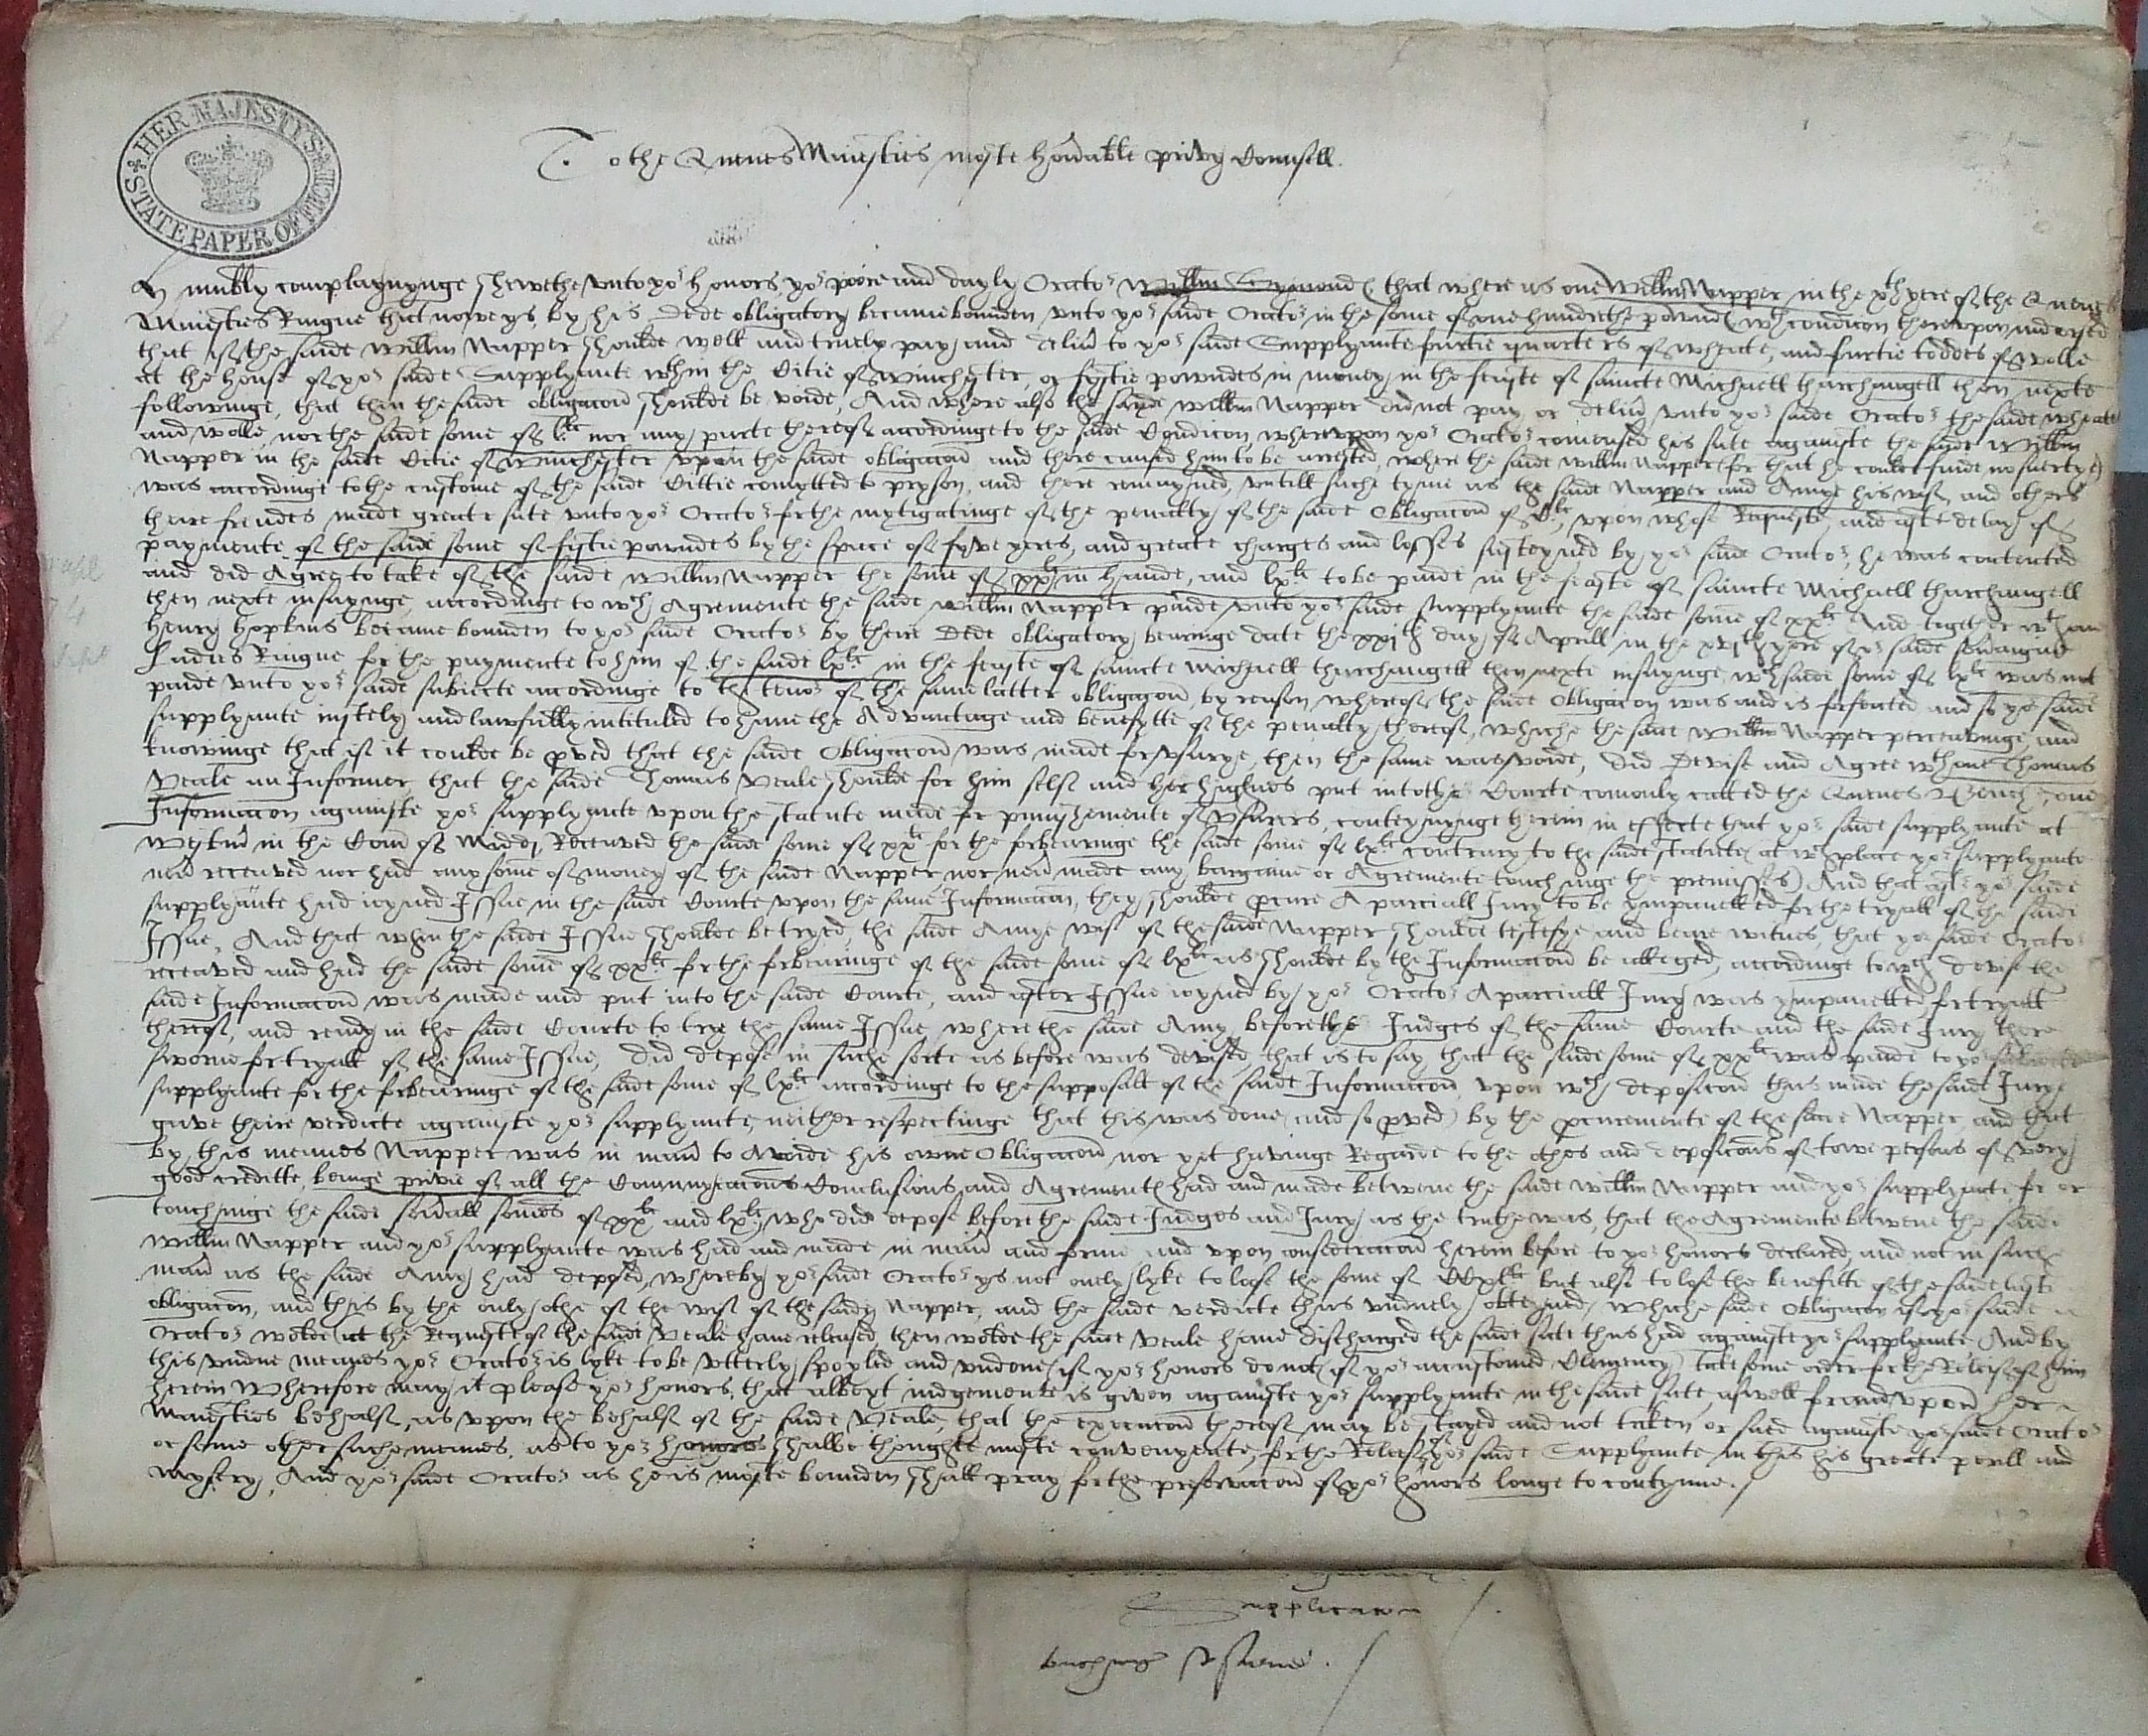 HER MAJESTY'S STATE PAPER OFFICE
To the Quenes Maiesties moste honorable privy Counsell.
Humbly complaynynge shewethe unto yor honors yor poore and dayly Orator Willm that where as one Willm Napper in the xth yere of the Quenes
Maiesties Raigne that nowe ys, by his Dede obligatory became bounden unto yor saide Orator in the some of one hundrethe pownd wth condicon thereupon indorsed
that if the saide Willm Napper shoulde well and truely pay and deliver to yor saide Supplyante furtie quarters of wheate, and furtie toddes of wolle
at the house of yor saide Supplyante wthin the Citie of Winchester, or fyftie powndes in money, in the feaste of saincte Michaell tharchangell then nexte
followinge, that then the saide obligacon shoulde be voide, And where also the sayde Willm Napper did not pay or deliver unto yor saide Orator the saide wheate
and wolle, nor the saide some of lli nor any parte thereof accordinge to the saide Condicon, whereupon yor Orator comensed his sute againste the saide Willm
Napper in the saide Citie of Winchester upon the saide obligacon and there caused him to be arrested, where the saide Willm Napper (for that he coulde finde no suertye)
was accordinge to the custome of the saide Cittie comytted to pryson, and there remayned, untill suche tyme as the saide Napper and Amye his wife and others
theire frendes made greate sute unto yor Orator for the mytigatinge of the penalty of the saide Obligacon of Cli, upon whose Requeste, and after delay of
paymente of the saide some of fyftie powndes by the space of fyve yeres, and greate charges and losses susteyned by yor saide Orator, he was contented
and did Agree to take of the saide Willm Napper the some of xxli in hande, and lxli to be paide in the feaste of saincte Michaell tharchangell
then nexte insuynge, accordinge to wch Agremente the saide Willm Napper paide unto yor saide supplyante the saide some of xxli And together wth one
Henry Hopkins became bounden to yor saide Orator by theire Dede obligatory bearinge date the xxith day of Aprill in the xvith yere of or saide soveraigne
Ladies Raigne for the paymente to him of the saide lxli in the feaste of saincte Michaell tharchangell then nexte insuynge, wch saide some of lxli was not
paide unto yor saide subiecte accordinge to the tenor of the same latter obligacon, by reason whereof the saide Obligacon was and is forfeited and so yor saide
supplyante iustely and lawfully intituled to have the Advantage and benefytte of the penalty thereof, whiche the saide Willm Napper perceavinge, and
knowinge that if it coulde be proved that the saide Obligacon was made for usurye, then the same was voide, did Devise and Agree wth one Thomas
Veale an Informer, that the saide Thomas Veale shoulde for him selfe and her highnes put into the Courte comonly called the Quenes Bench, one
Informacon againste yor supplyante upon the statute made for punishemente of Usurers, conteynynge therein in effecte that yor saide supplyante at
Westmr in the Countie of Midd, Receaved the saide some of xxli for the forbearinge the saide some of lxli contrary to the saide statute (at wch place yor supplyante
never receaved nor had any some of money of the saide Napper nor never made any bargaine or Agremente touchinge the premisses) And that after yor saide
supplyante had ioyned Issue in the saide Courte upon the same Informacon, they shoulde procure A parciall Jury to be ympanelled for the tryall of the saide
Issue, And that when the saide Issue shoulde be tryed, the saide Amye wife of the saide Napper shoulde testefye and beare witnes, that yor saide Orator
receaved and had the saide some of xxli for the forbearinge of the saide some of lxli as shoulde by the Informacon be alleged, accordinge to wch devise the
saide Informacon was made and put into the saide Courte, and after Issue ioyned by yor Orator A parciall Jury was ympanelled, for tryall
thereof, and ready in the saide Courte to trye the same Issue, where the saide Amy before the Judges of the same Courte and the saide Jury there
sworne for tryall of the same Issue, did depose in suche sorte as before was devised, that is to say that the saide some of xxli was paide to yor
supplyante for the forbearinge of the saide some of lxli accordinge to the supposall of the saide Informacon, upon wch deposicon thus made the saide Jury
gave theire verdicte againste yor supplyante, neither respectinge that this was done (and so proved) by the procuremente of the saide Napper, and that
by this meanes Napper was in maner to Avoide his owne Obligacon nor yet havinge Regarde to the othes and deposicons of towe persons of very
good creditte, beinge privie of all the Comunycacons Conclusions and Agrements had and made betwene the saide Willm Napper and yor supplyante for or
touchinge the saide severall somes of xxli and lxli, who did depose before the saide Judges and Jury as the truthe was, that the Agremente betwene the saide
Willm Napper and yor supplyante was had and made in maner and forme and upon consideracon herein before to yor honors declared, and not in suche
maner as the saide Amy had deposed, whereby yor saide Orator ys not onely lyke to loose the some of but also to lose the benefitte of the saide laste
obligacon, and this by the only othe of the wife of the saide Napper, and the saide verdicte thus unduely obteyned, whiche saide Obligacon if yor saide
Orator wolde (at the Requeste of the saide Veale) have released, then wolde the saide Veale have discharged the saide sute thus had againste yor supplyante, And by
this undue meanes yor Orator is lyke to be utterly spoyled and undone (if yor honors do not of yor accustomed Clemency) take some order for the Releife of him
herein Wherefore may it please yor honors, that albeyt iudgemente is given againste yor supplyante in the saide sute, aswell for and upon her
Maiesties behalfe, as upon the behalfe of the saide Veale, that the execucon thereof may be stayed and not taken or sued againste yor saide Orator
or some other suche meanes, as to yor honors shalbe thoughte moste convenyente, for the Releife of yor saide Supplyante in this his greate perill and
mysery, And yor saide Orator as he is moste bounden shall pray for the preservacon of yor honors longe to contynue.
Supplicacon